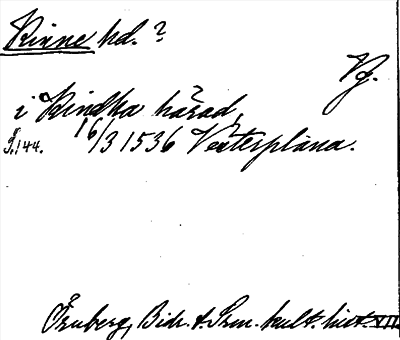 Kinne hd. ?
Vg.
i Kindha härad,
S. 144. 16/3 1536 Vesterplana.
Örnberg, Bidr. t. Sven. kult. hist. XII.